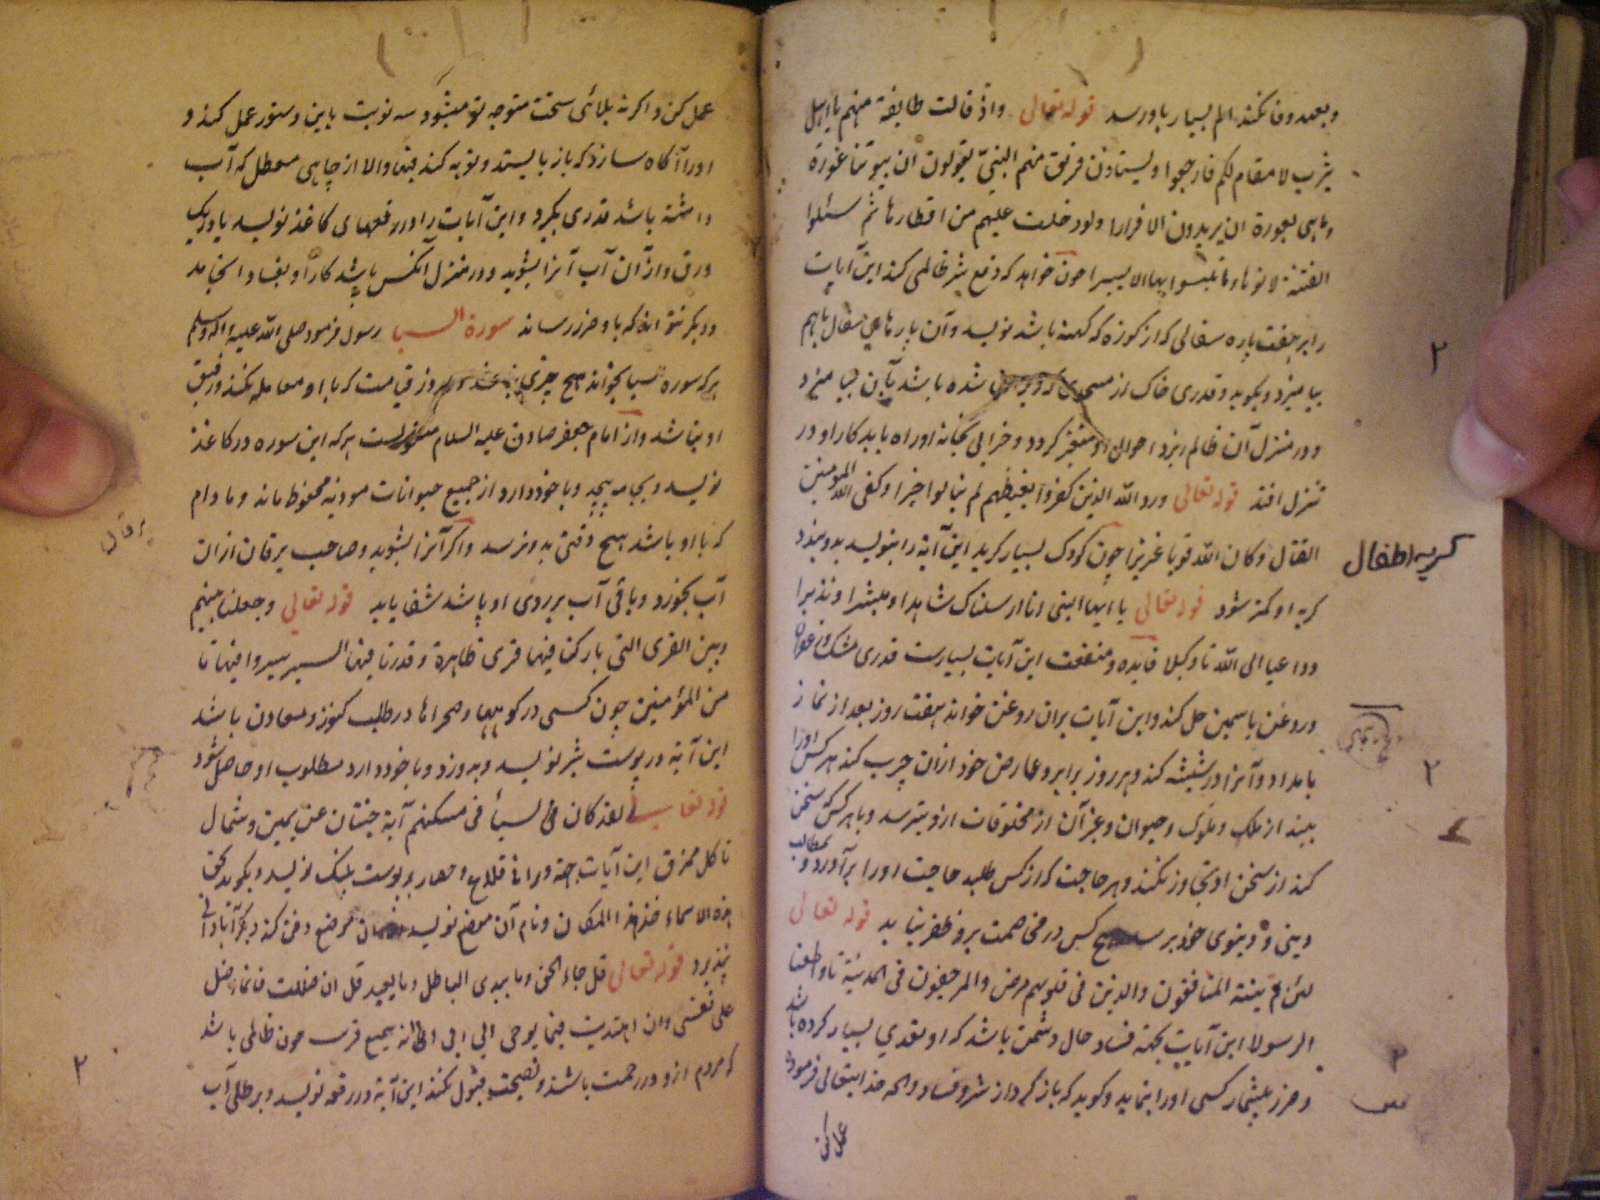 وبعهد وفا نکند الم بسیار باو رسد قوله تعالی واذ قالت طایفة منهم یا اهل
یثرب لا مقام لکم فارجعوا ویستاذن فریق منهم النبی یقولون ان بیوتنا عورة
وما هی بعورة ان یریدون الا فرارا ولو دخلت علیهم من اقطارها ثم سئلوا
الفتنة لاتوها وما تلبثوا بها الا یسیرا چون خواهد که دفع شر ظالمی کند این آیات
را بر هفت پاره سفالی که از کوزه که کهنه باشد نویسد وآن پارهای سفال باهم
بیامیزد وبکوبد وقدری خاک از مسجدی که ویران شده باشد بآن بیامیزد
ودر منزل آن ظالم ریزد احوال او متغیر کردد وخرابی بخانه او راه یابد کار او در
تنزل افتد قوله تعالی ورد الله الذین کفروا بغیظهم لم ینالوا خیرا وکفی الله المؤمنین
القتال وکان الله قویا عزیزا چون کودک بسیار کرید این آیه را بنویسد بدو بندد
کریه او کمتر شود قوله تعالی یا ایها النبی انا ارسلناک شاهدا ومبشرا ونذیرا
وداعیا الی الله تا وکیلا فایده ومنفعت این آیات بسیارست قدری مشک وزعفران
وروغن یاسمین حل کند واین آیات بران روغن خواند هفت روز بعد از نماز
بامداد وآنرا در شیشه کند وهر روز برابرو وعارض خود ازان چرب کند هرکس اورا
ببیند از ملک وملوک وحیوان وغیر آن از مخلوقات ازو بترسد وباهرکس که سخن
کند از سخن او تجاوز نکند وهر حاجت که از کس طلبد حاجت اورا برآورد ومطالب
دینی ودنیوی خود برسد هیچ کس در مخاصمت برو ظفر نیابد قوله تعالی
لئن لم ینته المنافقون والذین فی قلوبهم مرض والمرجفون فی المدینة تا واطعنا
الرسولا این آیات بجهة فساد حال دشمن باشد که او تعدی بسیار کرده باشد
وضرر بیشمار کسی اورا بنماید وکوید که بازکرد از شر وفساد والحه خدایتعالی فرموده
عمل کن
کریه اطفال
۲
۲
۲
عمل کن واکرنه بلائی سخت متوجه تو میشود سه نوبت باین دستور عمل کند و
اورا آکاه سازد که باز بایستد وتوبه کند فبها والا از چاهی معطل که آب
داشته باشد قدری بکیرد واین آیات را در رقعهای کاغذ نویسد یا در یک
ورق وازان آب آنرا بشوید ودر منزل آنکس پاشد کار او بفساد انجامد
ودیکر نتواند که باو ضرر رساند سورة السبا رسول فرمود صلی الله علیه واله وسلم
هرکه سوره سبا بخواند هیچ چیزی نباشد روز قیامت که با او معامله نکند ورفیق
او نباشد واز امام جعفر صادق علیه السلام منقولست هرکه این سوره در کاغذ
نویسد وبجامه پیچد وبا خود دارد از جمیع حیوانات موذیه محفوظ ماند ومادام
که با او باشد هیچ وقتی بدو نرسد واکر آنرا بشوید وصاحب یرقان ازان
آب بخورد وباقی آب بر روی او پاشد شفا یابد قوله تعالی وجعلنا بینهم
وبین القری التی بارکنا فیها قری ظاهرة وقدرنا فیها السیر سیروا فیها تا
من المؤمنین چون کسی در کوهها وصحراها در طلب کنوز ومعادن باشد
این آیة در پوست شیر نویسد وبدوزد وبا خود دارد مطلوب او حاصل شود
قوله تعالی لقد کان فی لسبأ فی مسکنهم آیة جنتان عن یمین وشمال
تا کل ممزق این آیات بجهة ویرانی قلاع وحصار بر پوست پلنک نویسد وبکوید بحق
هذه الاسماء هذا المکان ونام آن موضع نویسد دران موضع دفن کند دیکر آبادانی
نپذیرد قوله تعالی قل جاء الحق وما یبدی الباطل وما یعید قل ان ضللت فانما اضل
علی نفسی وان اهتدیت فبما یوحی الی ربی انه سمیع قریب چون ظالمی باشد
که مردم ازو در زحمت باشند ونصیحت قبول نکند این آیة در رقعه نویسد وبر طلی آب
یرقان
۲